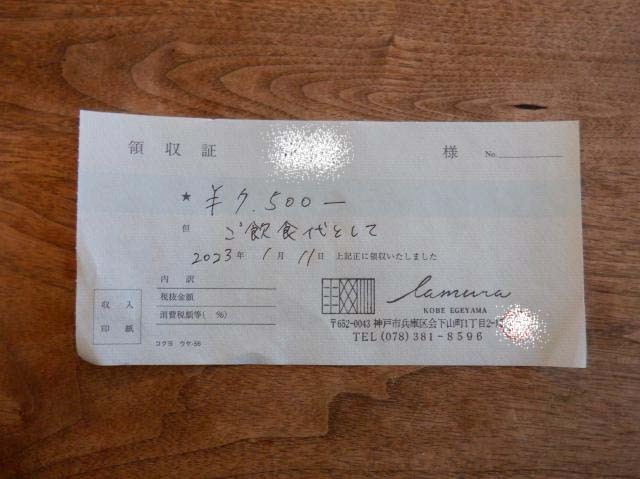 領収証 様 No.
★ ¥7,500―
但 ご飲食代として
2023年 1月 11日 上記正に領収いたしました
内 訳
税抜金額
消費税額等( %)
収入
印紙
コクヨ ウケ-56
lamura
KOBE EGEYAMA
〒652-0043 神戸市兵庫区会下山町1丁目2-1
TEL (078) 381-8596